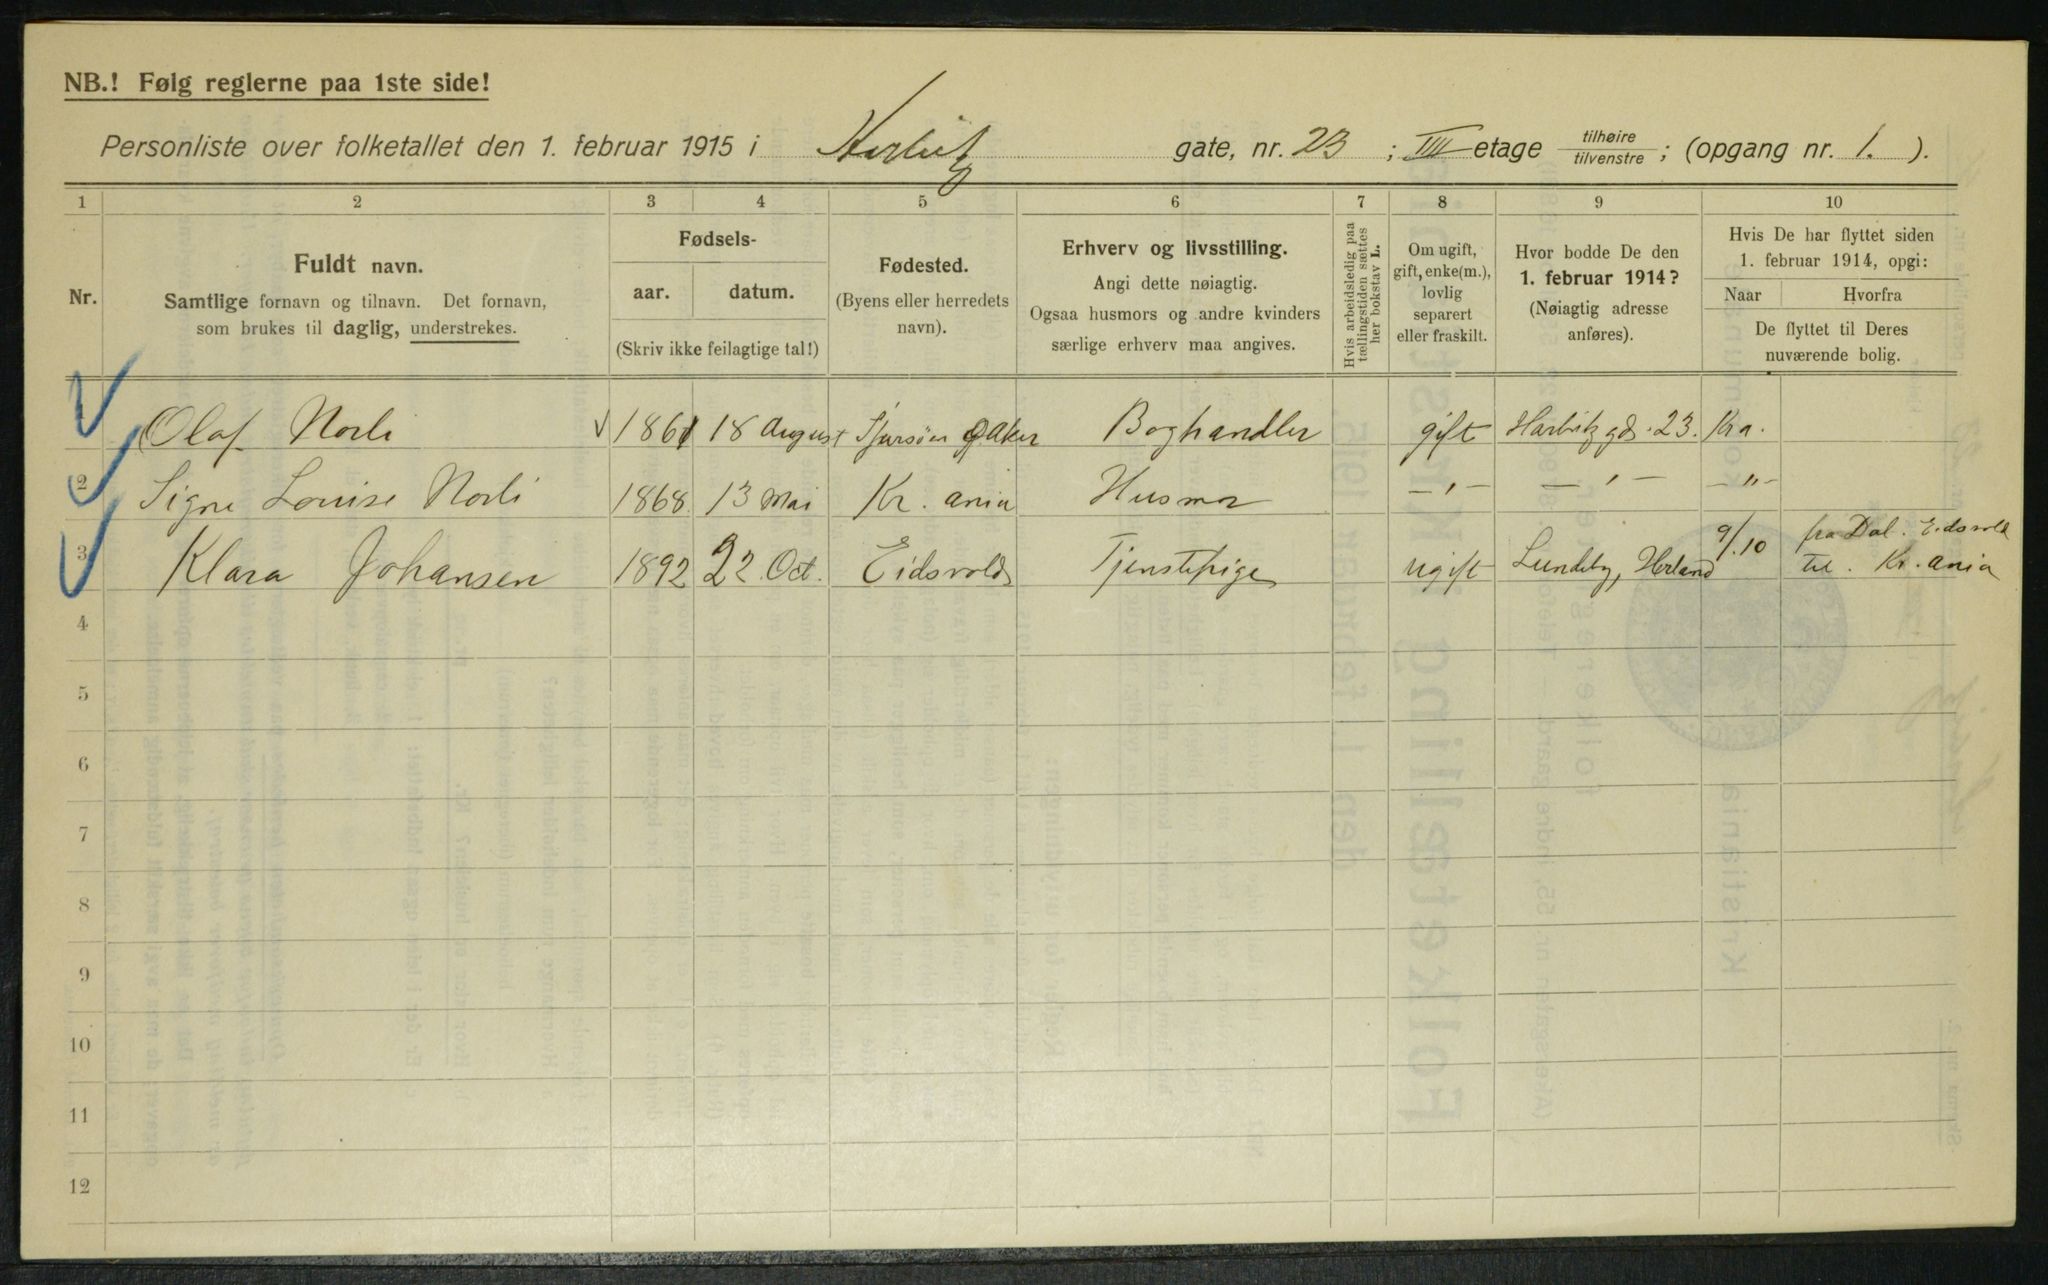 NB.! Følg reglerne paa 1ste side!
Personliste over folketallet den 1. februar 1915 i gate, nr. 23 ; IIII etage tilhøire/tilvenstre ; (opgang nr. 1. ).
1 2 3 4 5 6 7 8 9 10
Nr.
Fuldt navn.
Samtlige fornavn og tilnavn. Det fornavn,
som brukes til daglig, understrekes.
Fødsels-
aar. datum.
(Skriv ikke feilagtige tal!)
Fødested.
(Byens eller herredets
navn).
Erhverv og livsstilling.
Angi dette nøiagtig.
Ogsaa husmors og andre kvinders
særlige erhverv maa angives.
Hvis arbeidsledig paa
tællingstiden sættes
her bokstav L.
Om ugift,
gift, enke(m.),
lovlig
separert
eller fraskilt.
Hvor bodde De den
1. februar 1914?
(Nøiagtig adresse
anføres).
Hvis De har flyttet siden
1. februar 1914, opgi:
Naar Hvorfra
De flyttet til Deres
nuværende bolig.
Olaf Norli 1861 18 August Aker Boghandler gift Harbitzgds. 23. Kra.
2 Signe Louise Norli 1868 13 Mai Kr. ania Husmor — " — — " — — " —
3 Klara Johansen 1892 22 Oct. Eidsvold Tjenstepige ugift Lundeby, 9/10 fra Dal. Eidsvold
til. Kr. ania
4
5
6
7
8
9
10
11
12